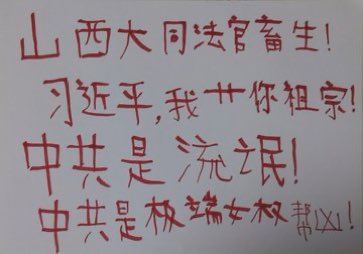 山西大同法官畜生!
习近平,我艹你祖宗!
中共是流氓!
中共是极端女权帮凶!